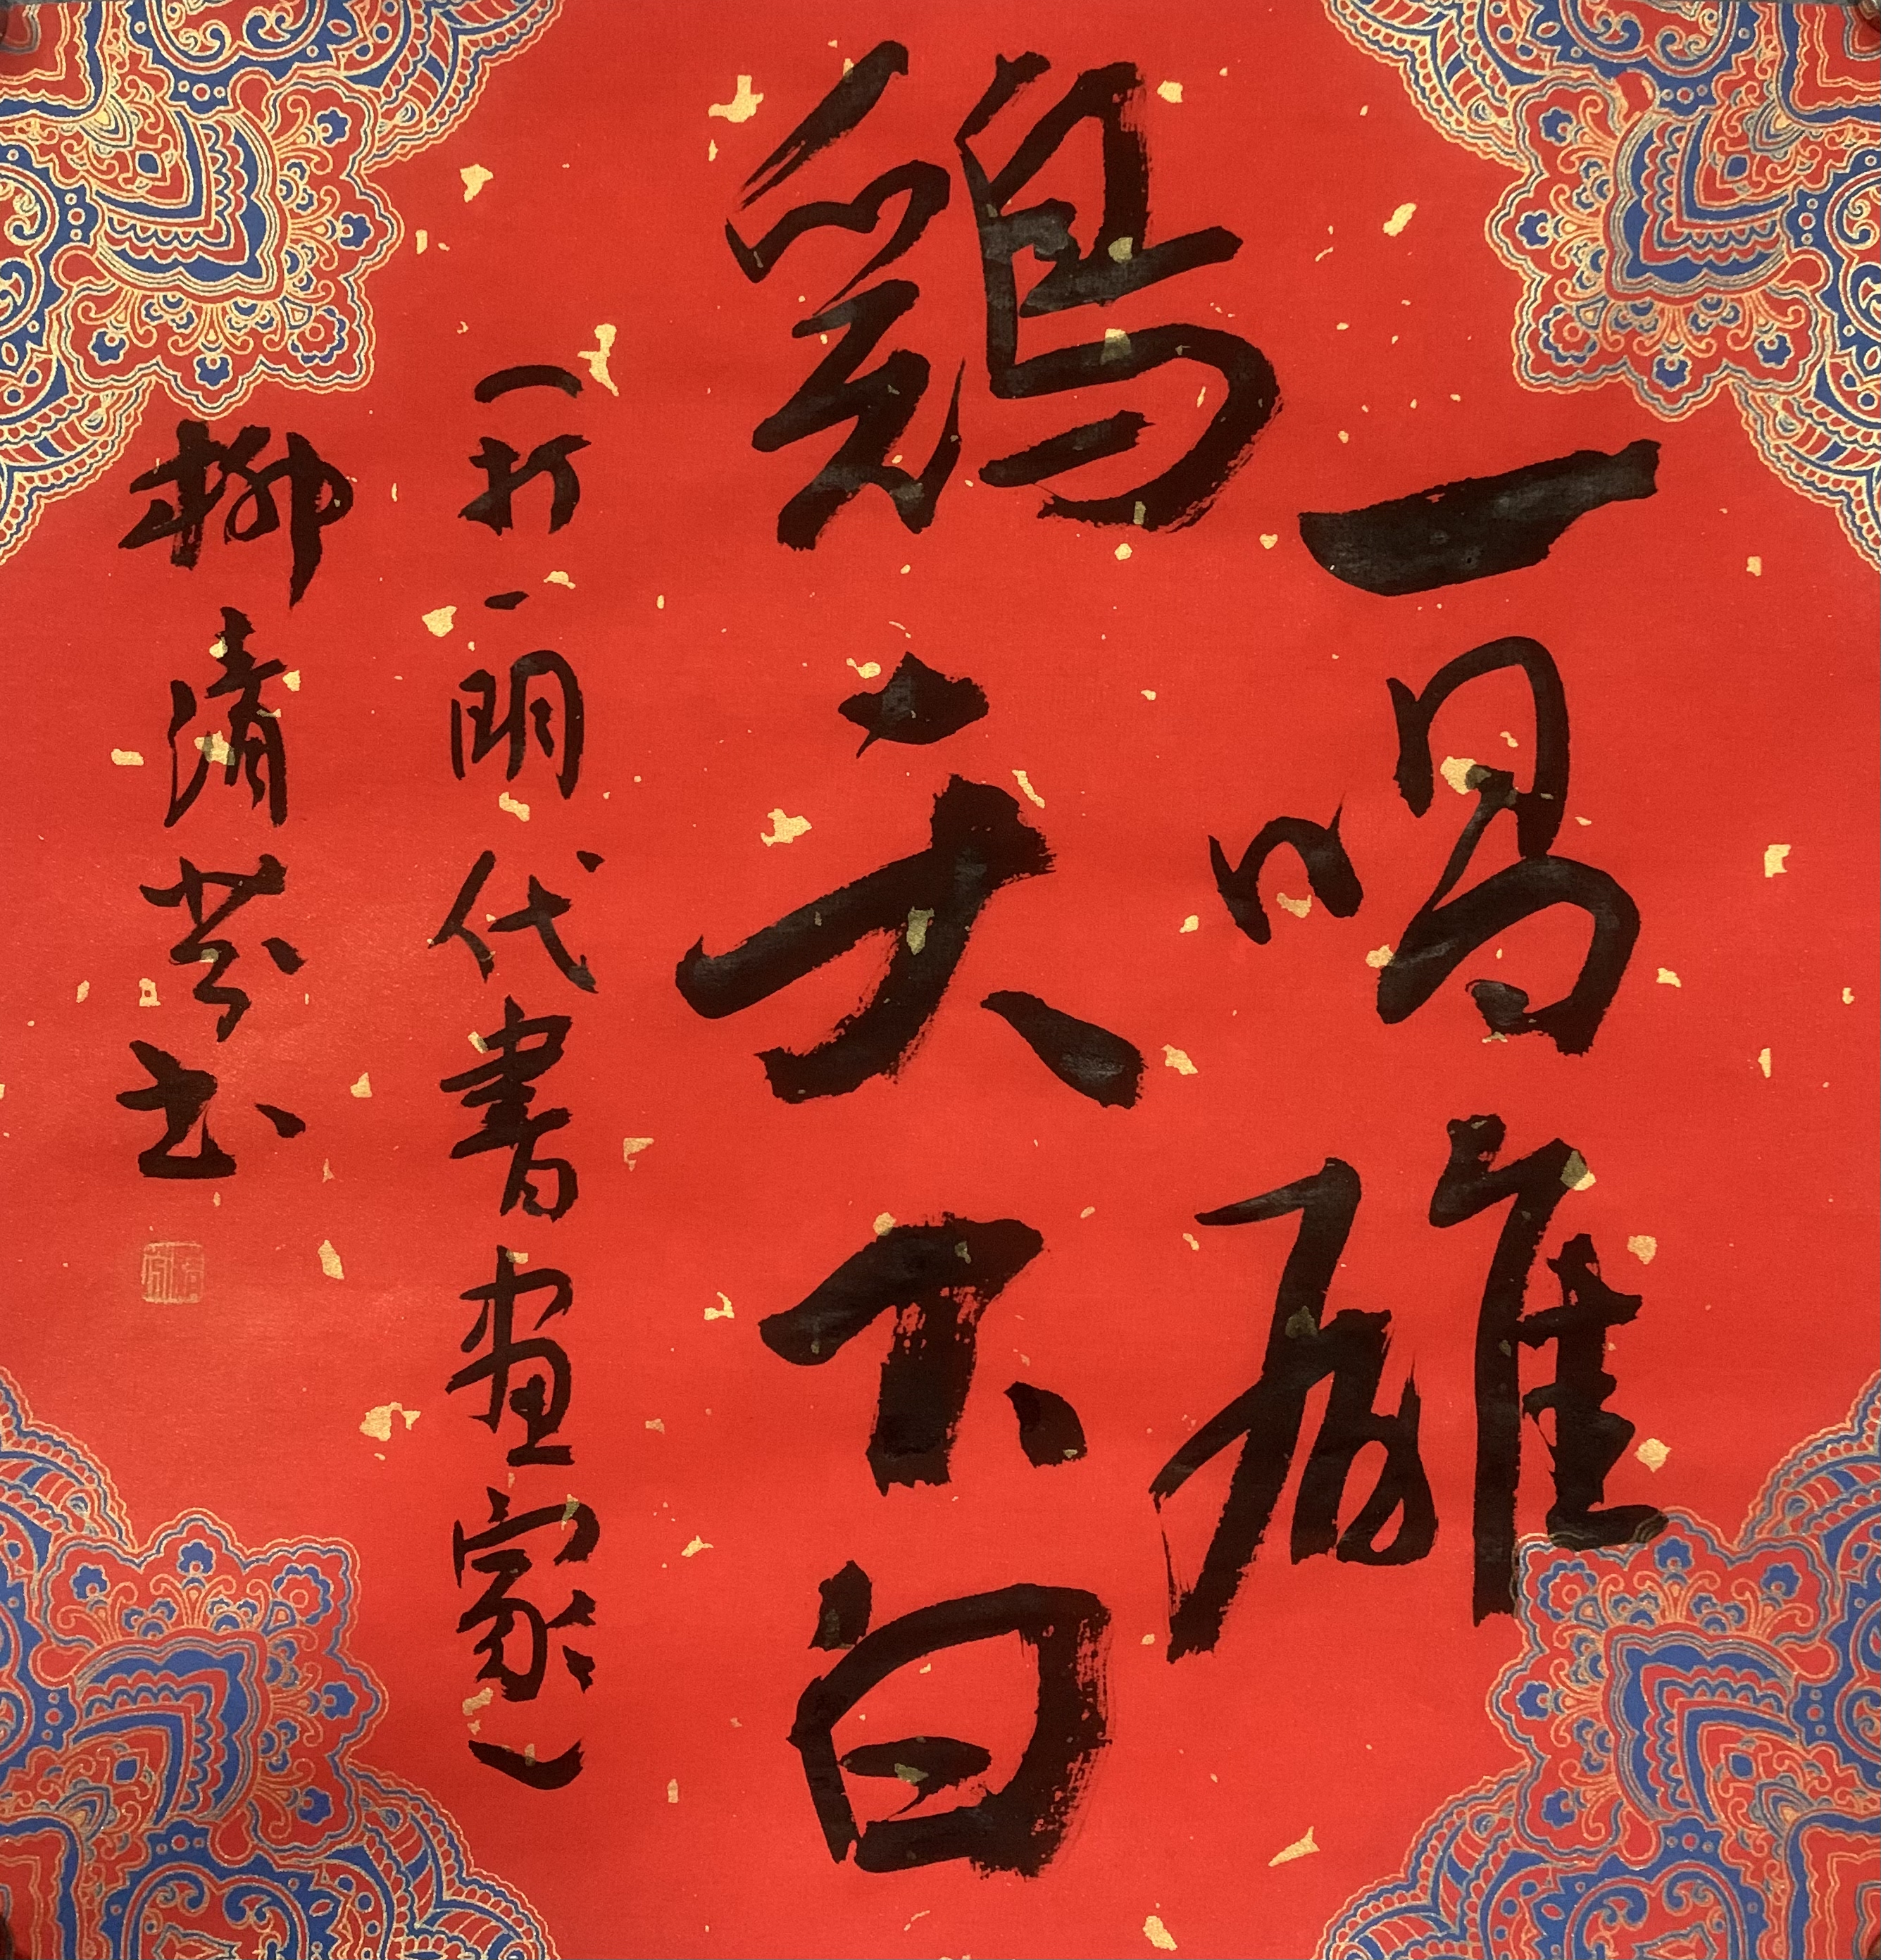 一唱雄
鷄天下白
（打一明代書画家）
柳清芬书